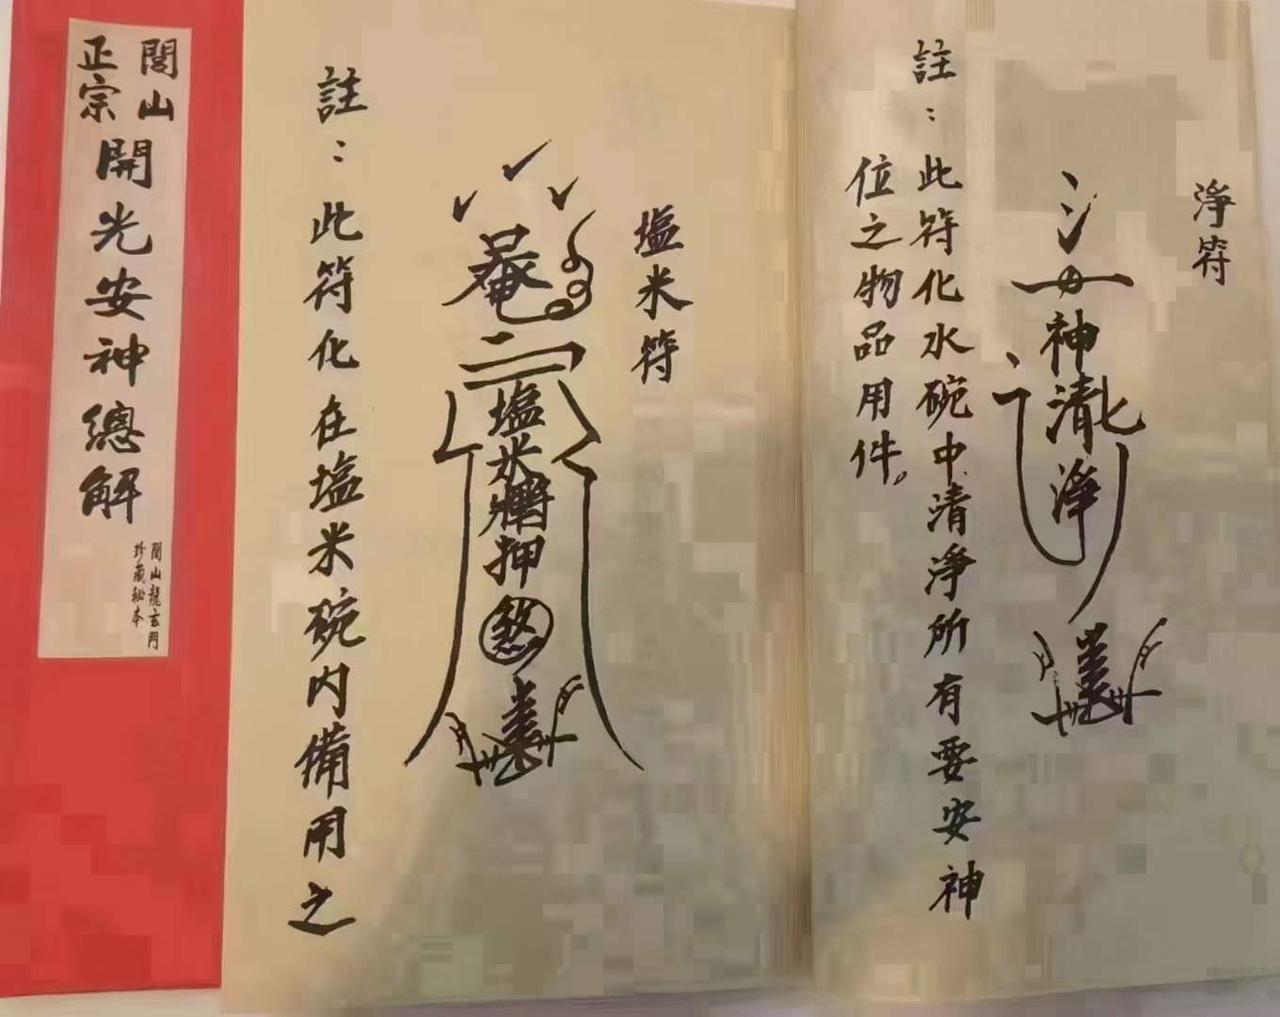 閭山
正宗
開光安神總解
閭山龍玄門
珍藏秘本
淨符
神清淨
註：此符化水碗中清淨所有要安神
位之物品用件。
塩米符
塩米
押
煞
註：此符化在塩米碗內備用之